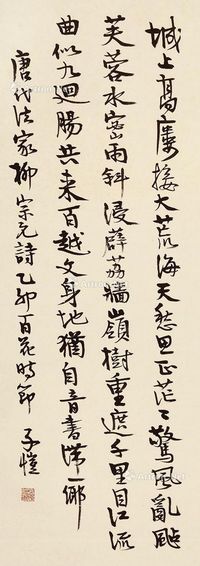 城上高楼接大荒海天愁思正茫〻驚風亂颭
芙蓉水密雨斜浸薜荔牆嶺樹重遮千里目江流
曲似九廻腸共来百越文身地猶自音書滞一鄉
唐代法家柳宗元詩乙卯百花時節 子愷